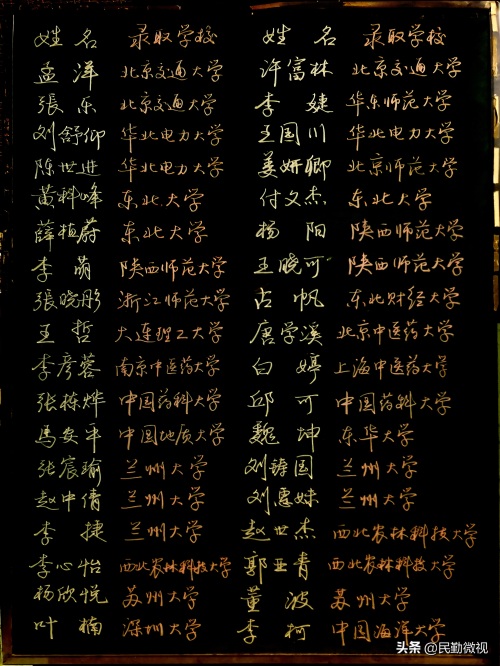 姓名 录取学校 姓名 录取学校
孟洋 北京交通大学 许富林 北京交通大学
張东 北京交通大学 李婕 华东师范大学
刘舒仰 华北电力大学 王国川 华北电力大学
陈世进 华北电力大学 姜妍卿 北京师范大学
黄科峰 东北大学 付文杰 东北大学
薛植蔚 东北大学 杨阳 陕西师范大学
李萌 陕西师范大学 王晓可 陕西师范大学
張晓彤 浙江师范大学 占帆 东北财经大学
王哲 大连理工大学 唐学溪 北京中医药大学
李彦蓉 南京中医药大学 白婷 上海中医药大学
张栋烨 中国药科大学 邱可 中国药科大学
馬安平 中国地质大学 魏坤 东华大学
张宸瑜 兰州大学 刘铸国 兰州大学
赵中倩 兰州大学 刘恩妹 兰州大学
李捷 兰州大学 赵世杰 西北农林科技大学
李心怡 西北农林科技大学 郭亚青 西北农林科技大学
杨欣悦 苏州大学 董波 苏州大学
叶楠 深圳大学 李柯 中国海洋大学
头条 @民勤微视